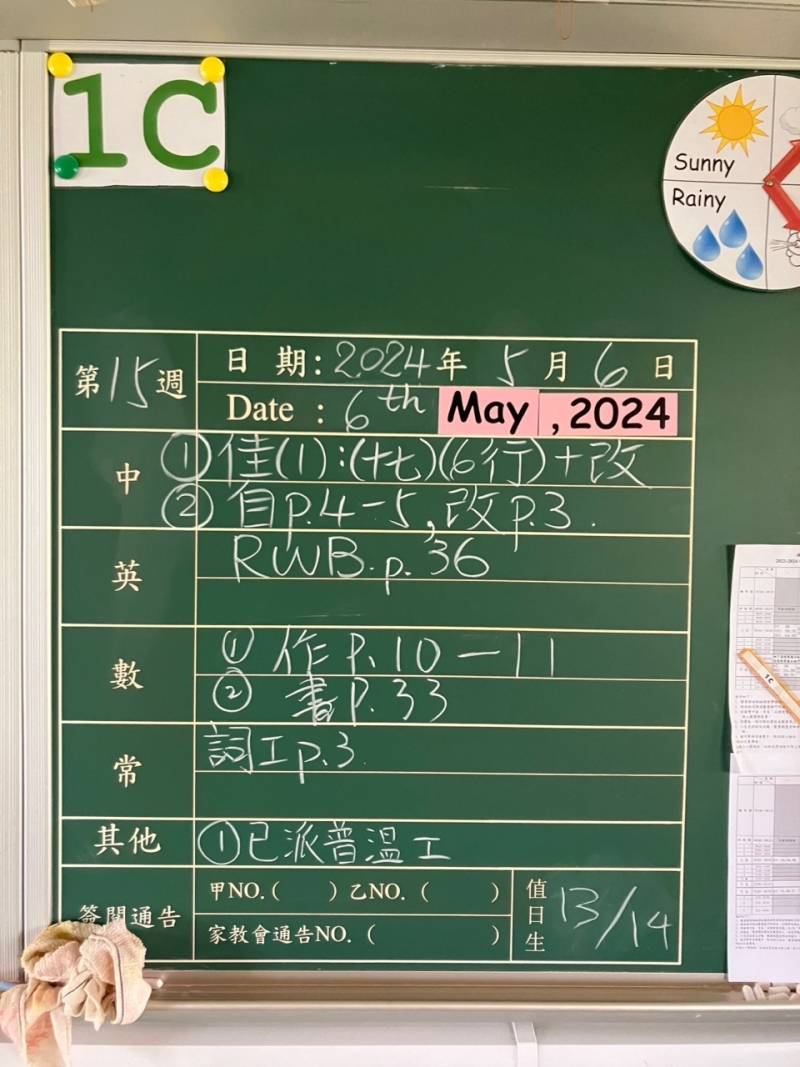 1C
Sunny
Rainy
第15週
日 期：2024年 5月 6日
Date : 6th May , 2024
中
①佳(1)：(十七)(6行)+改
②自p.4-5,改p.3.
英
RWB.p.36
數
① 作P.10-11
② 書P.33
常
詞工p.3.
其他
①已派普溫工
簽閱通告
甲NO.( ) 乙NO. ( )
家教會通告NO. ( )
值日生
13/14
1C